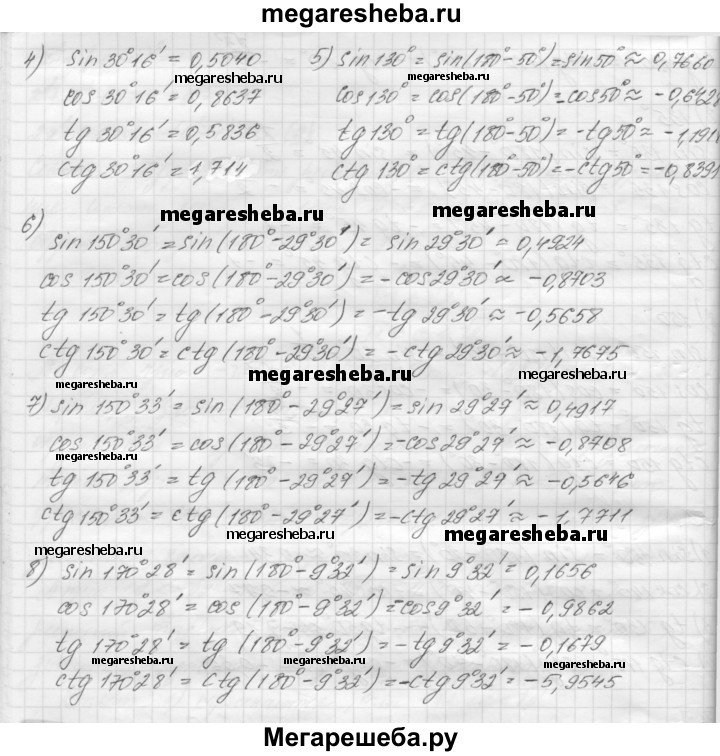 megaresheba.ru
4) sin 30°16′ = 0,5040 5) sin 130° = sin(180°-50°) = sin 50° ≈ 0,7660
megaresheba.ru megaresheba.ru
cos 30°16′ = 0,8637 cos 130° = cos(180°-50°) = -cos 50° ≈ -0,6428
tg 30°16′ = 0,5836 tg 130° = tg(180°-50°) = -tg 50° ≈ -1,191
ctg 30°16′ = 1,714 ctg 130° = ctg(180°-50°) = -ctg 50° = -0,8391
megaresheba.ru megaresheba.ru
6) sin 150°30′ = sin(180°-29°30′) = sin 29°30′ = 0,4924
cos 150°30′ = cos(180°-29°30′) = -cos 29°30′ ≈ -0,8703
tg 150°30′ = tg(180°-29°30′) = -tg 29°30′ ≈ -0,5658
ctg 150°30′ = ctg(180°-29°30′) = -ctg 29°30′ ≈ -1,7675
megaresheba.ru megaresheba.ru megaresheba.ru
7) sin 150°33′ = sin(180°-29°27′) = sin 29°27′ ≈ 0,4917
cos 150°33′ = cos(180°-29°27′) = -cos 29°27′ ≈ -0,8708
megaresheba.ru megaresheba.ru
tg 150°33′ = tg(180°-29°27′) = -tg 29°27′ ≈ -0,5646
ctg 150°33′ = ctg(180°-29°27′) = -ctg 29°27′ ≈ -1,7711
megaresheba.ru megaresheba.ru
megaresheba.ru
8) sin 170°28′ = sin(180°-9°32′) = sin 9°32′ = 0,1656
cos 170°28′ = cos(180°-9°32′) = -cos 9°32′ = -0,9862
tg 170°28′ = tg(180°-9°32′) = -tg 9°32′ = -0,1679
megaresheba.ru megaresheba.ru megaresheba.ru
ctg 170°28′ = ctg(180°-9°32′) = -ctg 9°32′ = -5,9545
Мегарешеба.ру